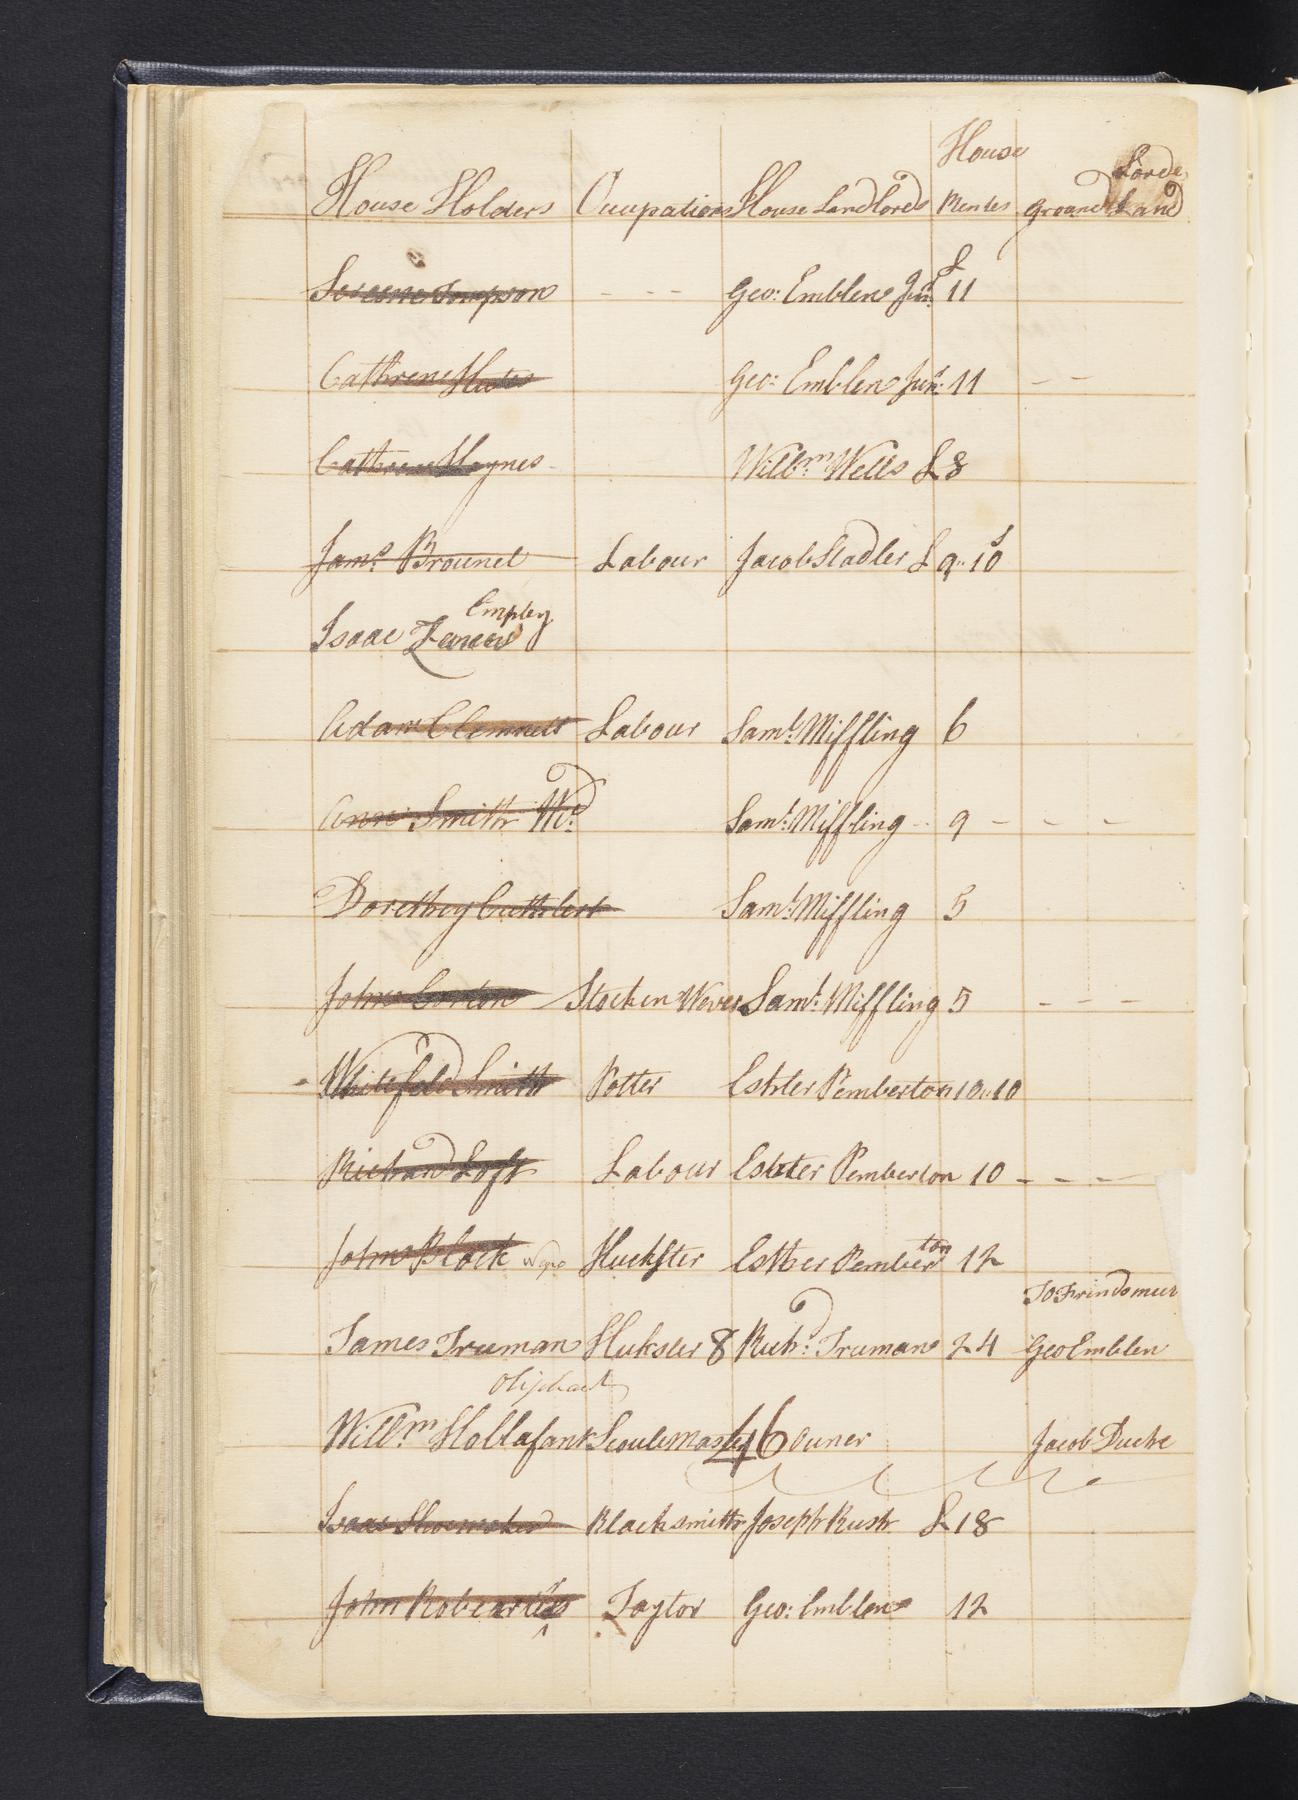 House Holders Occupations House Landlords House Rentes Ground Land Lords
Tompson - - - Geo: Emblen Junr. £ 11
Cathrene Geo: Emblen Junr. 11 - -
Cathrene Haynes Willm. Wells £ 8
Jams. Brounel Labour Jacob Stadler £ 9 .. 10 s
Isaac Zanens Empley
Adam Clemnets Labour Saml. Miffling 6
Anne Smith Wid. Saml. Miffling - - 9 - - -
Dorethey Cuthbert Saml. Miffling 5
John Stocken Wever Saml. Miffling 5 - - -
Whitefeld Smith Potter Eshter Pemberton 10 .. 10
Richard Loft Labour Eshter Pemberton 10 - - -
John Black Negro Huckster Esther Pemberton 12
To Frinds meer
James Truman Hukster 8 Richd. Truman 24 Geo Emblen
Oliphant
Willm. Hollafank Scoulemaster 46 Ouner Jacob Duche
Isaac Shoemaker Blacksmith Joseph Rush £ 18
John Taylor Geo: Emblen 12